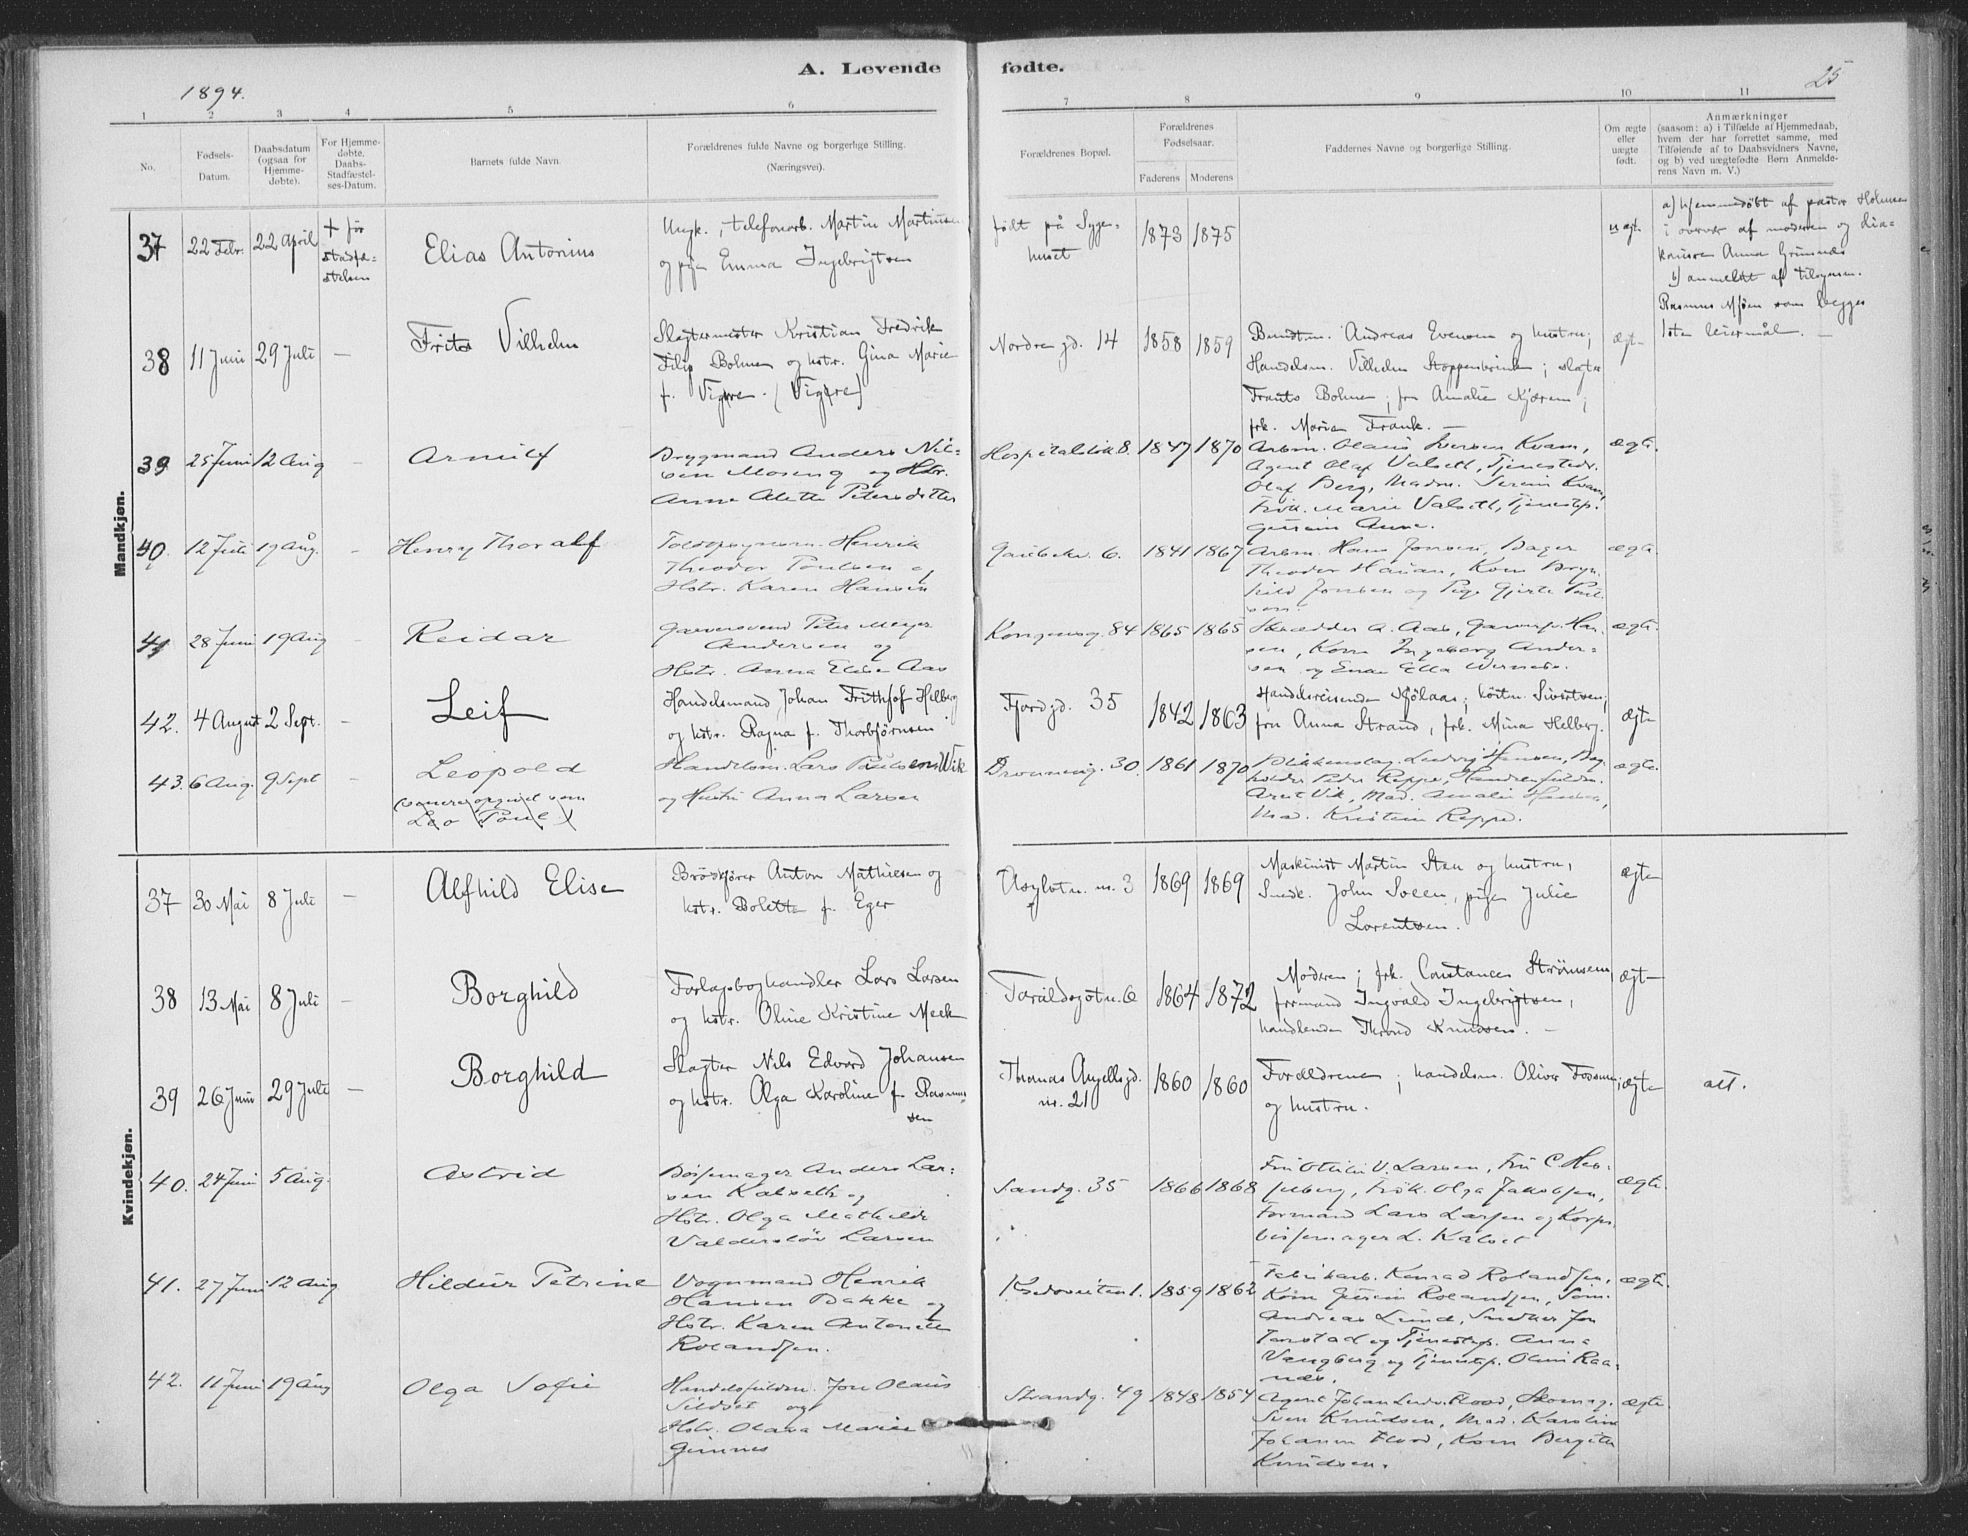 A. Levende fødte.
1894.
25
1 2 3 4 5 6 7 8 9 10 11
No.
Fødsels-Datum.
Daabsdatum (ogsaa for Hjemme-døbte).
For Hjemme-døbte, Daabs-Stadfæstel-ses-Datum.
Barnets fulde Navn.
Forældrenes fulde Navne og borgerlige Stilling.
(Næringsvei).
Forældrenes Bopæl.
Forældrenes Fødselsaar.
Faderens Moderens
Faddernes Navne og borgerlige Stilling.
Om ægte eller uægte født.
Anmærkninger
(saasom: a) i Tilfælde af Hjemmedaab,
hvem der har forrettet samme, med
Tilføiende af to Daabsvidners Navne,
og b) ved uægtefødte Børn Anmelde-
rens Navn m. V.)
Mandkjøn.
37 22 Febr. 22 April + før stadfæ-stelsen
Elias Antonius
Ungk., telefonarb. Martin Martinsen
og pige Emma Ingebrigtsen
født på Syge-
huset
1873 1875
uægt.
a) hjemmedøbt af pastor Holmsen
i overvær af moderen og dia-
konisse Anna Grimnæs
b) anmeldt af tilsynsm.
Rasmus Mjøen som begges
1ste leiermål. —
38 11 Juni 29 Juli —
Frits Vilhelm
Slagtermester Kristian Fredrik
Filip Bohmen og hstr. Gina Marie
f. Vigre. (Vigre)
Nordre gd. 14 1858 1859
Bundtm. Andreas Evensen og hustru;
Handelsm. Vilhelm Stoppenbrink; slagter
Frants Bohmen; fru Amalie Kjærem;
frk. Marie Frank. —
ægte
39 25 Juni 12 Aug -
Arnulf
Brygmand Anders Nil-
sen Moseng og Hstr.
Anne Alette Petersdatter
Hospitalsløk. 8. 1847 1870
Arbm. Olaus Iversen Kvam,
Agent Olaf Valseth, Tjenestedr.
Olaf Berg, Madm. Serein Kvam,
Frök. Marie Valseth, Tjenestp.
Gurein Aune.
ægte.
40. 12 Juli 19 Aug. -
Henry Thoralf
Toldopsynsm. Henrik
Theodor Poulsen og
Hstr. Karen Hansen
Gaubekv. 6. 1841 1867
Arbm. Hans Jonsen, Bager
Theodor Hauan, Kone Bryn-
hild Jonsen og Pige Gjerte Poul-
sen.
ægte.
41 28 Juni 19 Aug -
Reidar
Garversvend Peter Meyer
Andersen og
Hstr. Anna Elise Aas
Kongensg. 84 1865 1865
Skrædder A. Aas, Garversv. Han-
sen, Kone Ingeborg Ander-
sen og Enke Ella Werness.
ægte.
42. 4 August 2 Sept. -
Leif
Handelsmand Johan Frithjof Helberg
og hstr. Ragna f. Thorbjørnsen
Fjordgd. 35 1842 1863
Handelsreisende Kjölaas; köbm. Sivertsen;
fru Anna Strand, frk. Mina Helberg.
ægte
43. 6 Aug. 9 Sept
Leopold
(senere opgivet som
Leo Poul)
Handelsm. Lars Paulsen Wik
og Hustru Anna Larsen
Dronningg. 30. 1861 1870
Blikkenslag. Ludvig Hansen, Bog-
holder Peder Reppe, Handelsfuldm.
Arnt Vik, Mad. Amalie Hansen,
Mad. Kristine Reppe.
ægte.
Kvindekjøn.
37 30 Mai 8 Juli —
Alfhild Elise
Brödkjörer Anton Mathiesen og
hstr. Bolette f. Eger
Asylvtn. nr. 3 1869 1869
Maskinist Martin Sten og hustru,
Snedk. John Soeen, pige Julie
Lorentsen.
ægte
38 13 Mai 8 Juli —
Borghild
Forlagsboghandler Lars Larsen
og hstr. Oline Kristine Meek
Taraldsgötn. 6 1864 1872
Moderen; frk. Constance Strömsem;
formand Ingvald Ingebrigtsen,
handlende Thrond Knudsen. —
ægte
39 26 Juni 29 Juli —
Borghild
Slagter Nils Edvard Johansen
og hstr. Olga Karoline f. Rasmus-
sen
Thomas Angellsgd.
nr. 21
1860 1860
Forældrene; handelsm. Oliver Fossum;
og hustru.
ægte
att.
40. 24 Juni 5 Aug.
Astrid
Börsemager Anders Lar-
sen Kalseth og
Hstr. Olga Mathilde
Valderslöv Larsen
Sandg. 35 1866 1868
Fru Othilie V. Larsen, Fru C. Hes-
selberg, Frök. Olga Jakobsen,
Formand Lars Larsen og Korps-
bössemager L. Kalset
ægte.
41. 27 Juni 12 Aug
Hildur Petrine
Vognmand Henrik
Hansen Bakke og
Hstr. Karen Antonette
Rolandsen.
Ksedsveiten 1. 1859 1862
Fabrikarb. Konrad Rolandsen,
Kone Gurein Rolandsen, Töm.
Andreas Lund, Snedker Jon
Tanstad og Tjenestep. Anna
Vangberg og Tjenestp. Oline Raa-
næs.
ægte.
42. 11 Juni 19 Aug
Olga Sofie
Handelsfuldm. Jon Olaus
Sildset og
Hstr. Olava Marie
Gimnes
Strandg. 49 1848 1854
Agent Johan Ludv. Flood, Skomag.
Sven Knudsen, Mad. Karoline
Johanne Flood, Kone Bergitte
Knudsen.
ægte.